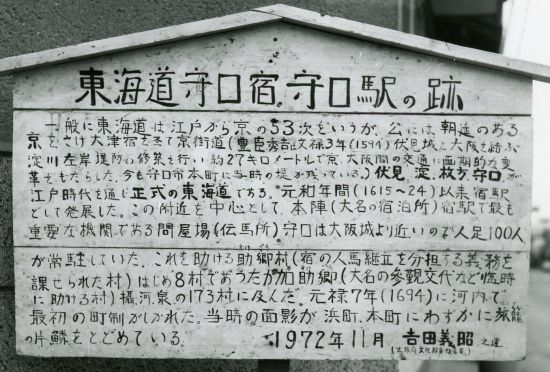 東海道守口宿 守口駅の跡
一般に東海道は江戸から京の53次をいうが、公には朝廷のある
京をさけ大津宿を経て京街道(豊臣秀吉文禄3年(1594)伏見城と大阪を結ぶ
淀川左岸堤防の修築を行い約27キロメートルで京、大阪間の交通に画期的な変
革をもたらした。今も守口市本町に当時の堤が残っている。)伏見、淀、枚方、守口が
江戸時代を通じ正式の東海道である。元和年間(1615~24)以来宿駅
として発展した。この附近を中心として、本陣(大名の宿泊所)宿駅で最も
重要な機関である問屋場(伝馬所)守口は大阪城より近いので人足100人
が常駐していた。これを助ける助郷村(宿の人馬継立を分担する義務を
課せられた村)はじめ8村であったが加助郷(大名の参観交代など臨時
に助ける村)摂河泉の173村に及んだ。元禄7年(1694)に河内で
最初の町制がしかれた。当時の面影が浜町、本町にわずかに旅籠
の片鱗をとどめている。 1972年11月 吉田義昭之建